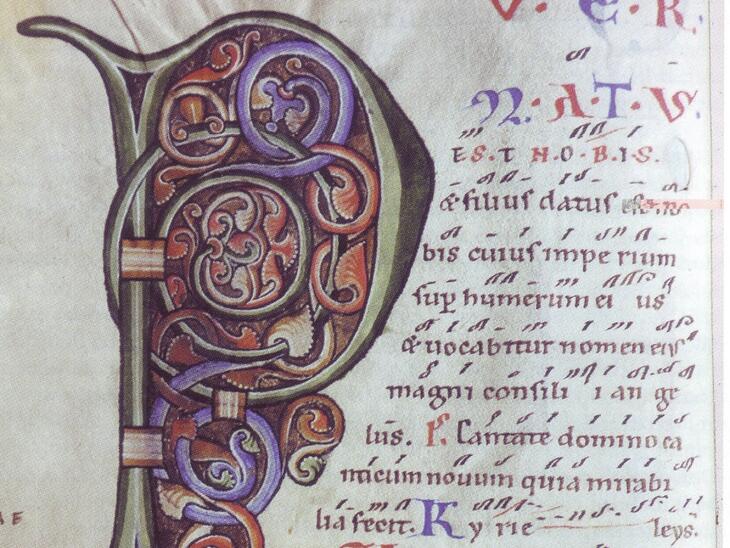 V. E R.
N. A. T. V. S.
E S. T N. O. B. I. S.
& filius datus est no
bis cuius impe rium
sup humerum ei us
& uocabitur nomen eius
magni consili i an ge
lus. Ps. Cantate domino ca
nticum nouum quia mirabi
lia fecit. K y rie leys.
A E